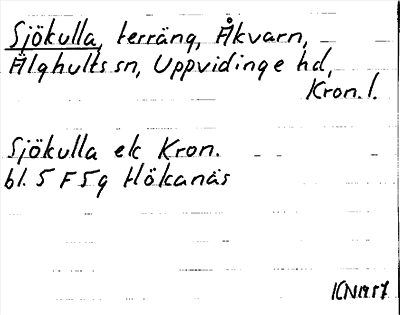 Sjökulla, terräng, Åkvarn,
Älghults sn, Uppvidinge hd,
Kron. l.
Sjökulla ek Kron.
bl. 5 F 5g Hökanäs